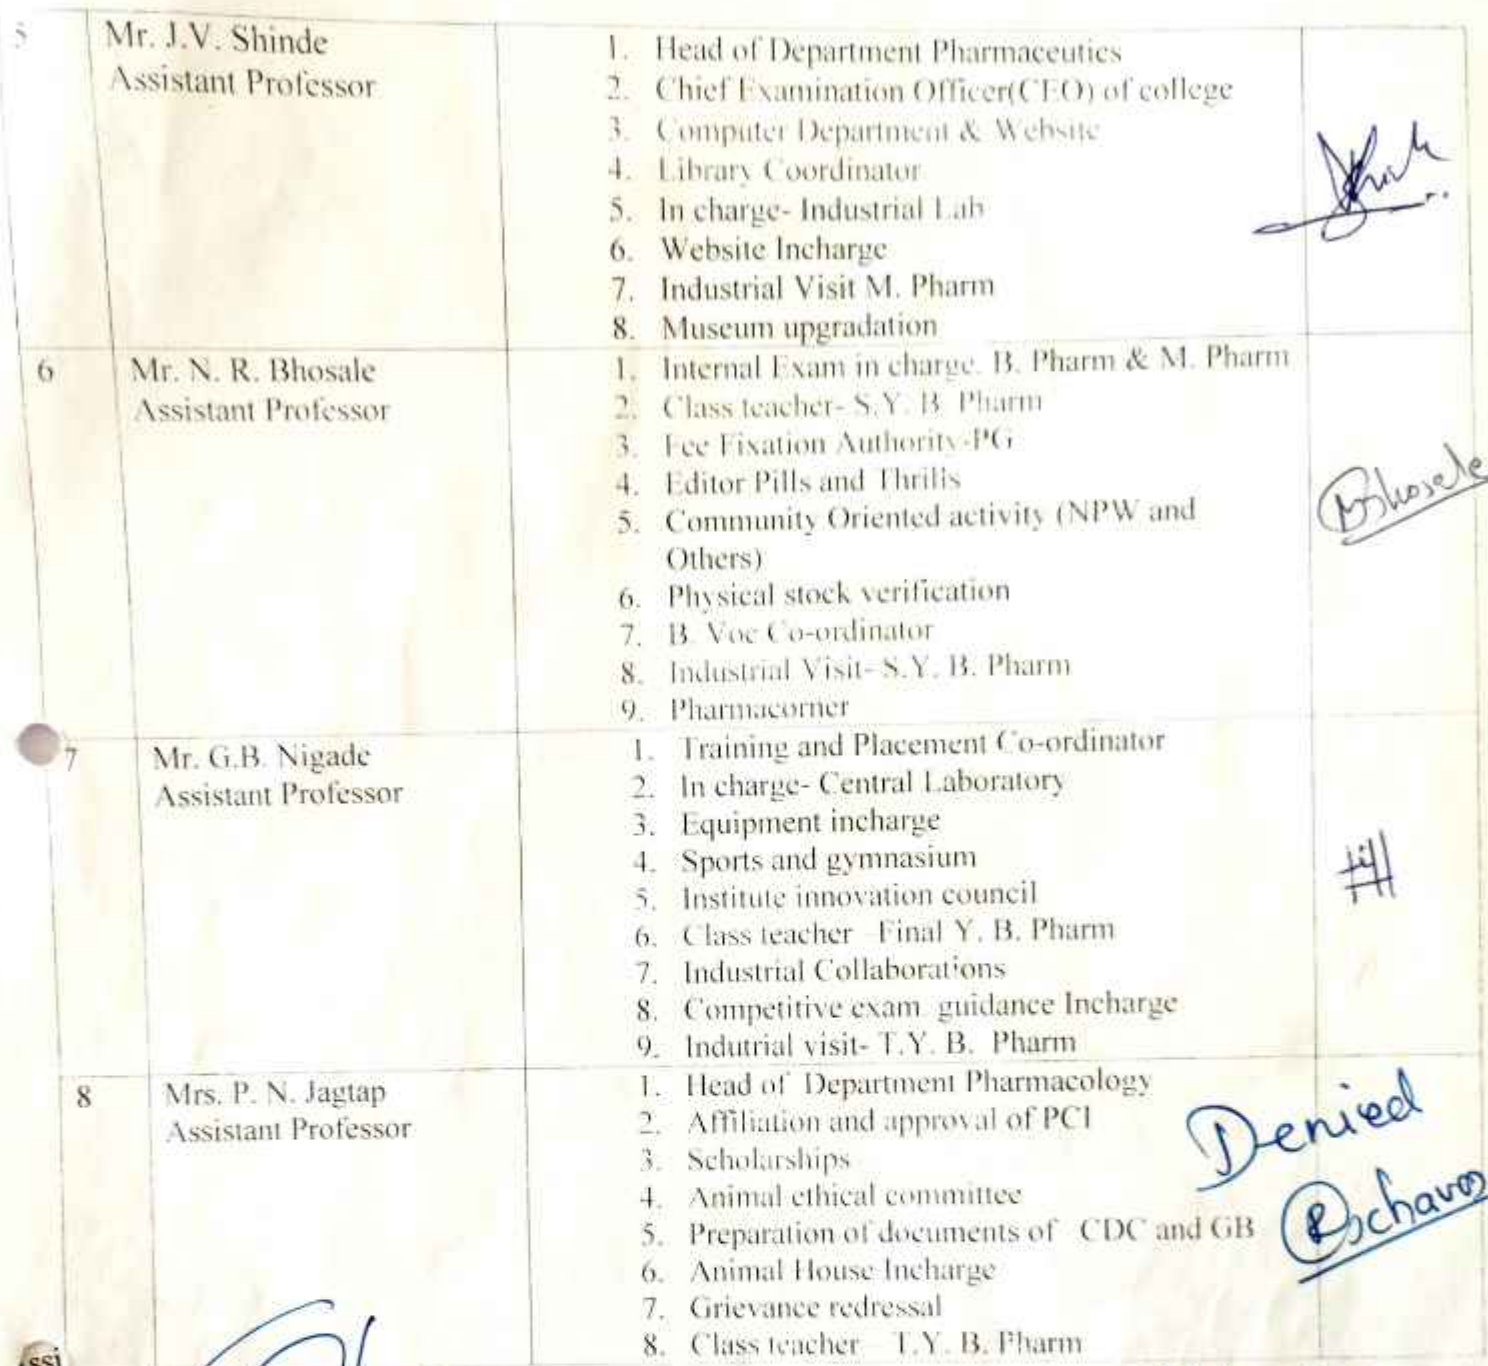 5 Mr. J.V. Shinde
Assistant Professor
1. Head of Department Pharmaceutics
2. Chief Examination Officer(CEO) of college
3. Computer Department & Website
4. Library Coordinator
5. In charge- Industrial Lab
6. Website Incharge
7. Industrial Visit M. Pharm
8. Museum upgradation
6 Mr. N. R. Bhosale
Assistant Professor
1. Internal Exam in charge. B. Pharm & M. Pharm
2. Class teacher- S.Y. B. Pharm
3. Fee Fixation Authority-PG
4. Editor Pills and Thrills
5. Community Oriented activity (NPW and
Others)
6. Physical stock verification
7. B. Voc Co-ordinator
8. Industrial Visit- S.Y. B. Pharm
9. Pharmacorner
Bhosale
7 Mr. G.B. Nigade
Assistant Professor
1. Training and Placement Co-ordinator
2. In charge- Central Laboratory
3. Equipment incharge
4. Sports and gymnasium
5. Institute innovation council
6. Class teacher Final Y. B. Pharm
7. Industrial Collaborations
8. Competitive exam guidance Incharge
9. Indutrial visit- T.Y. B. Pharm
8 Mrs. P. N. Jagtap
Assistant Professor
1. Head of Department Pharmacology
2. Affiliation and approval of PCI
3. Scholarships
4. Animal ethical committee
5. Preparation of documents of CDC and GB
6. Animal House Incharge
7. Grievance redressal
8. Class teacher T.Y. B. Pharm
Denied